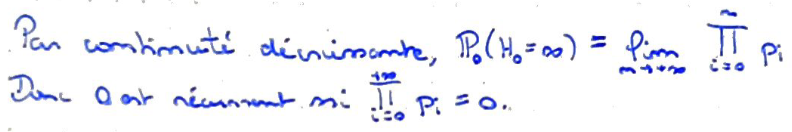 Par continuité décroissante, ℙ₀(H₀=∞) = lim_{n→+∞} ∏_{i=0}^{n} p_i
Donc 0 est récurrent ssi ∏_{i=0}^{+∞} p_i = 0.